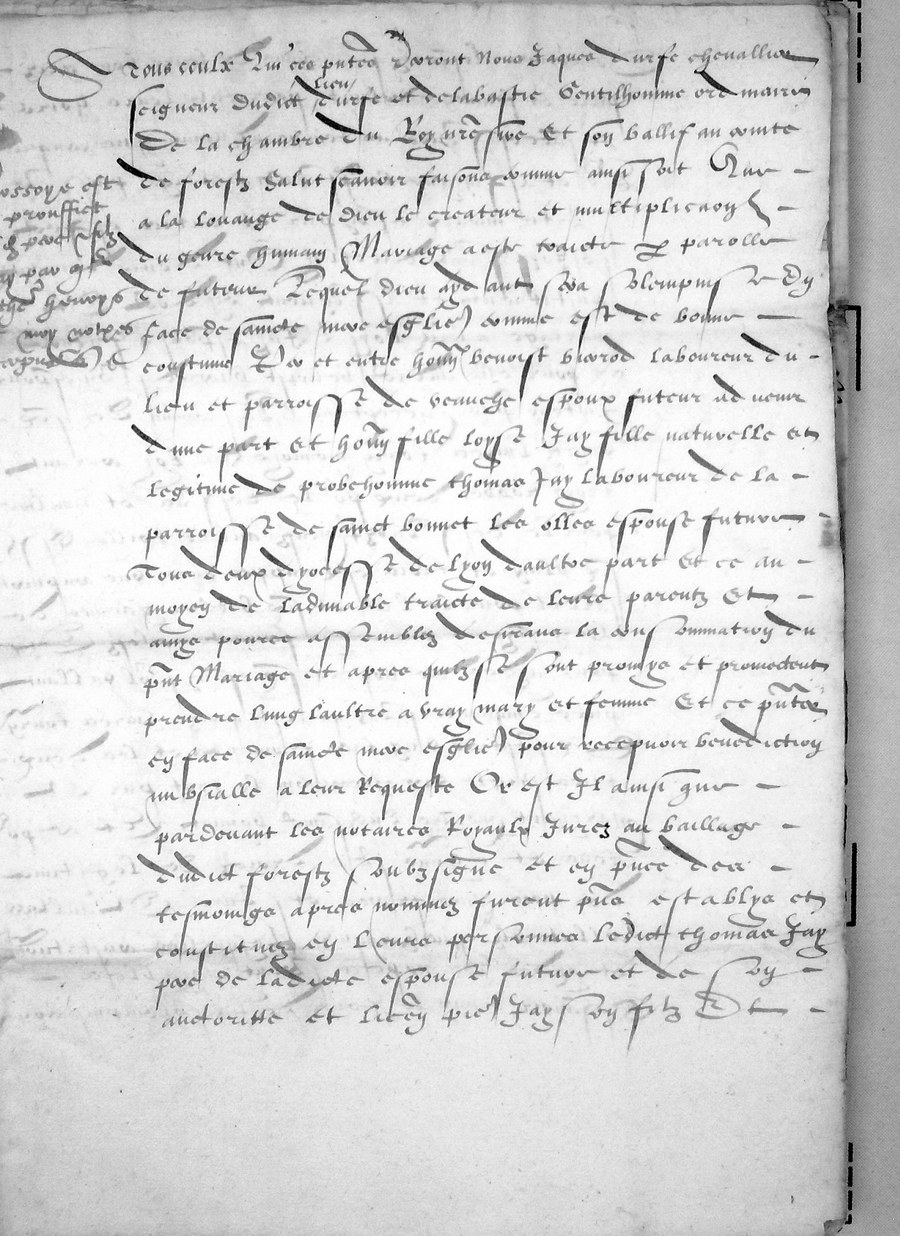 A Tous ceulx Qui ces pntes Verront Nous Jaques durfe chevallier
seigneur dudict lieu durfe et de la bastie Gentilhomme ordinaire
De la chambre du Roy nre sire Et son ballif au conte
de forestz Salut scavoir faisons comme ainsi soit Que
a la louange de dieu le createur et multiplicaon
du genre humain Mariage a este traicte par parolle
de futeur Lequel dieu aydant sera solempnise En
face de saincte mere esglie comme est de bonne
coustume De et entre honn benoist barod laboureur du
lieu et parroisse de veauche espoux futeur advenir
dune part et honn fille loyse Jay fille naturelle et
legitime de probehomme thomas Jay laboureur de la
parroisse de sainct bonnet les olles espouse future
Tous deux dyocesse de lyon daultre part Et ce au
moyen de ladmable traicte de leurs parentz Et
amys pource assemblez desirans la consommation du
pnt Mariage et apres quilz se sont promys et promectent
prendre lung laultre a vray mary et femme Et ce pnter
en face de saincte mere esglie pour recepvoir benediction
nubsialle a leur Requeste Or est Il ainsi que
pardevant les notaires Royaulx Jurez au bailliage
dudict forestz soubzsigne Et en pnce des
tesmoings apres nommez furent pns establys et
constituez en leurs personnes ledict thomas Jay
pere de ladicte espouse future et de son
auctoritte et licen pie Jay son filz Et
est
prouffict
par
heroys
moy notres